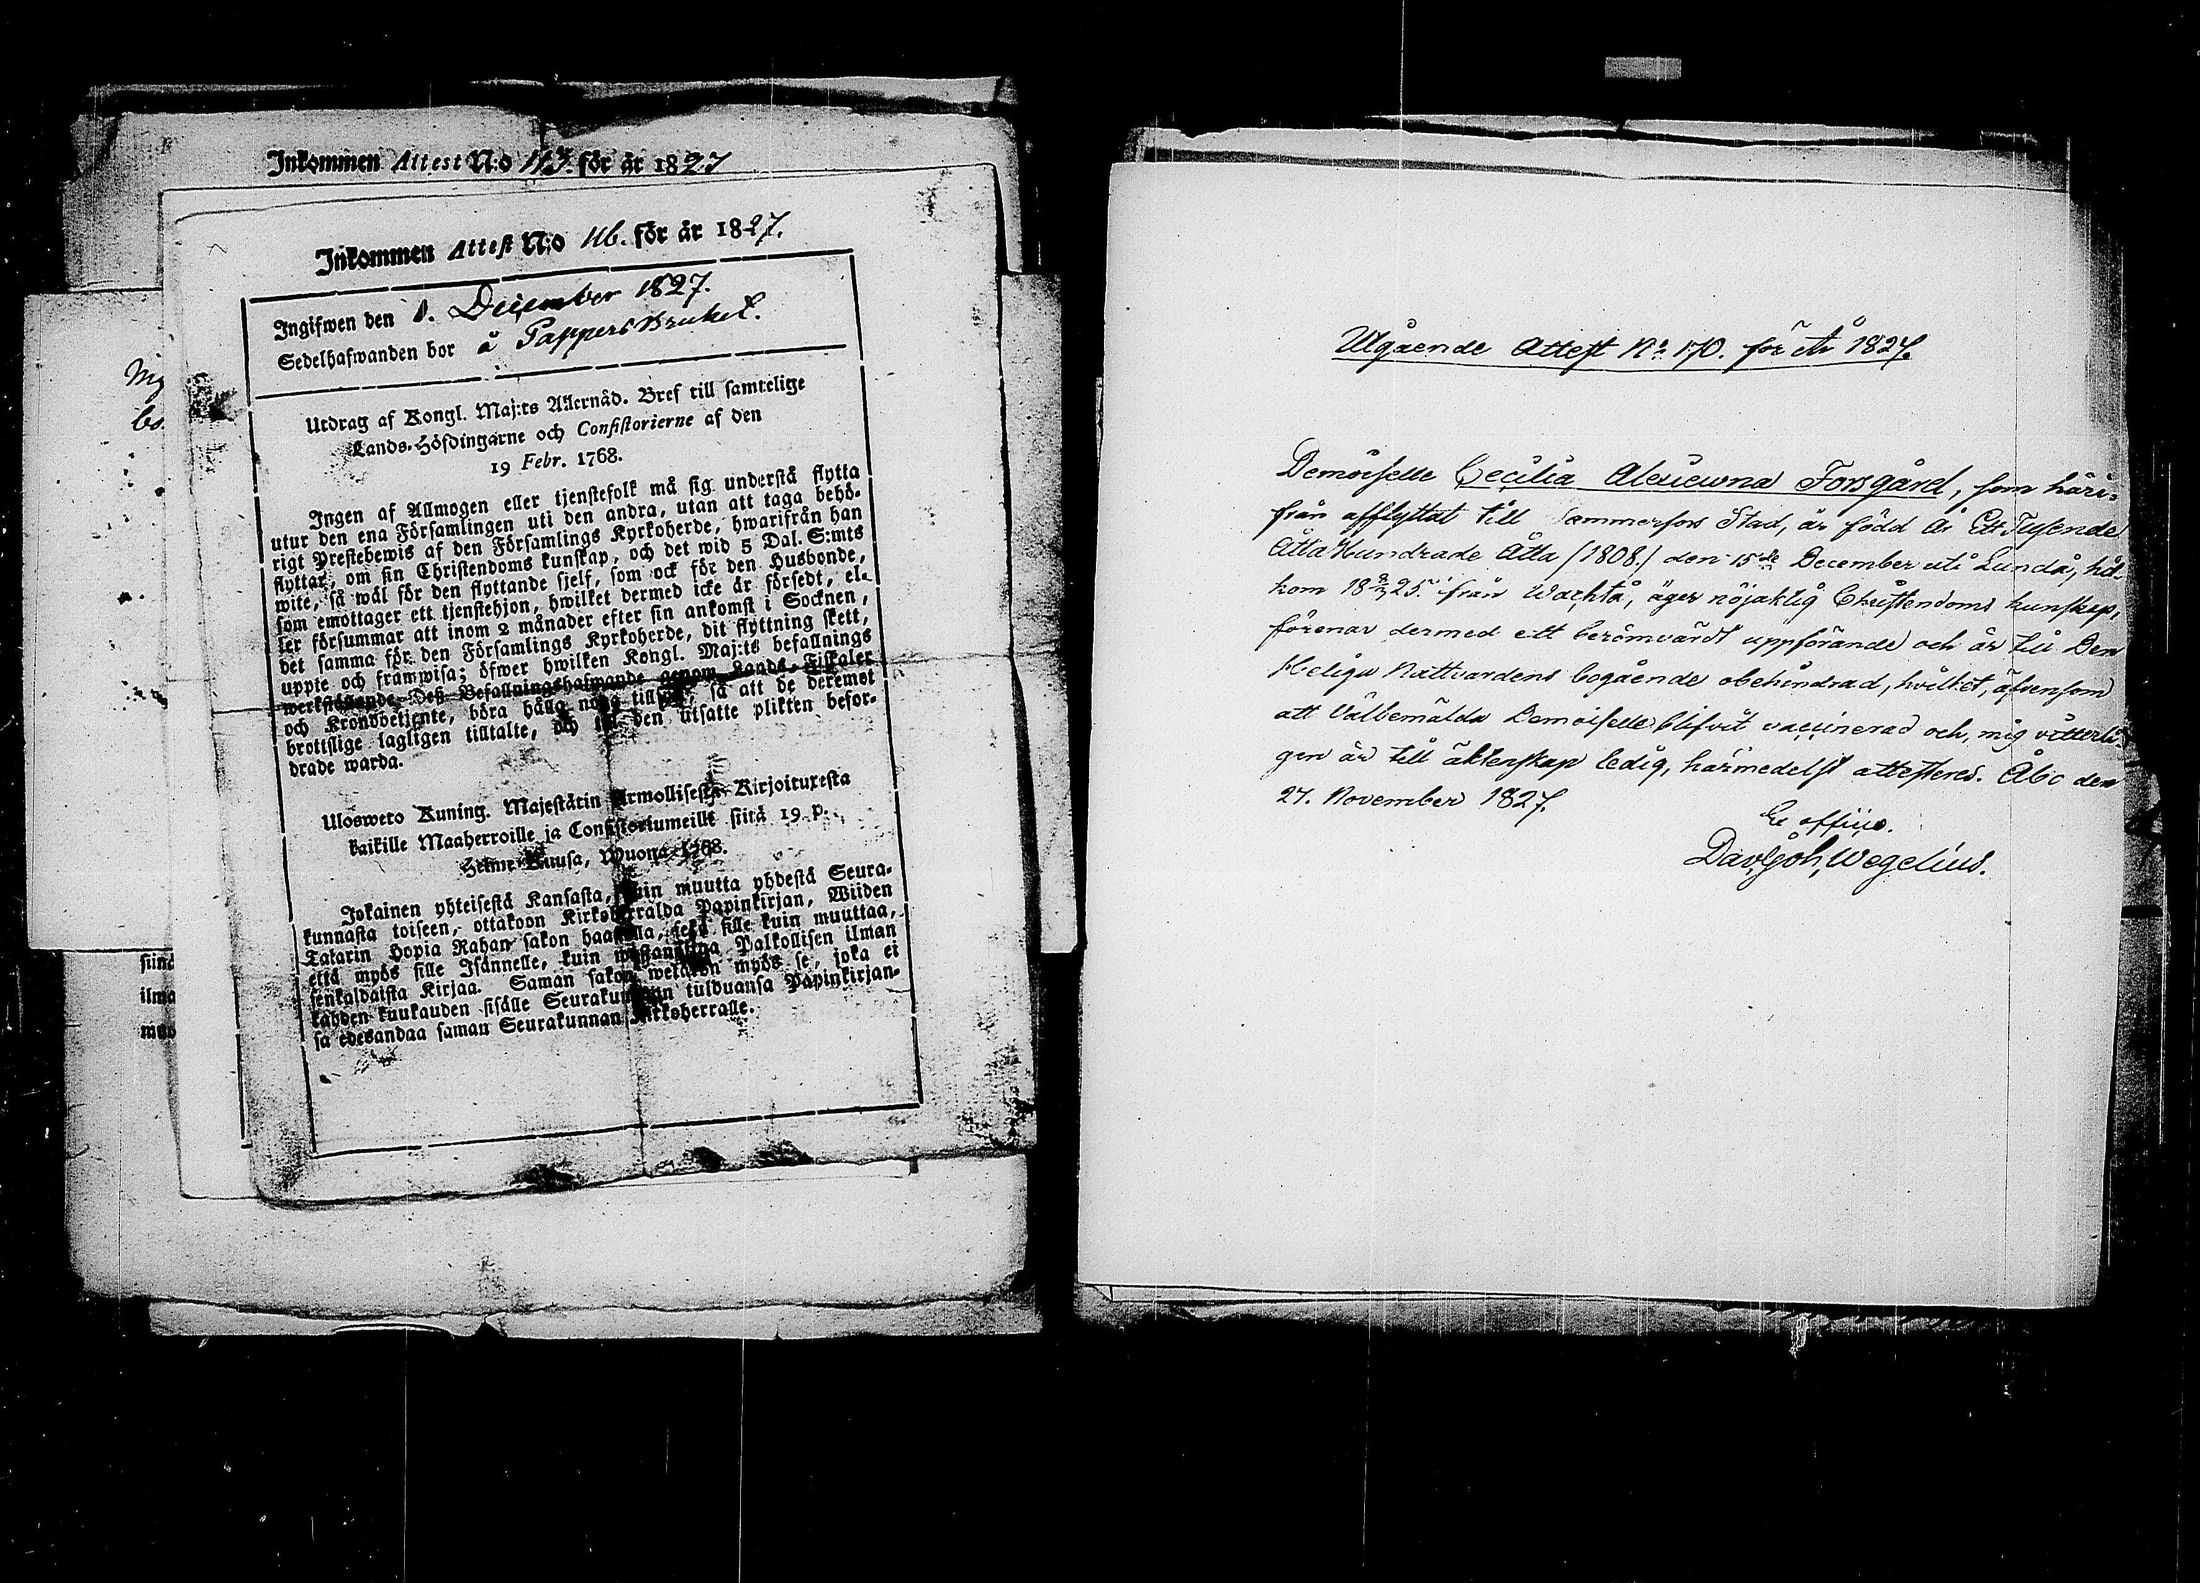 Inkommen Attest N:o 113. för år 1827
Inkommen Attest N:o 116. för år 1827.
Ingifwen den 1. December 1827.
Sedelhafwanden bor å Pappers Bruket.
Utdrag af Kongl. Maj:ts Allernåd. Bref till samtelige
Lands-Höfdingarne och Consistorierne af den
19 Febr. 1768.
Ingen af Allmogen eller tjenstefolk må sig understå flytta
utur den ena Församlingen uti den andra, utan att taga behö-
rigt Prestebewis af den Församlings Kyrkoherde, hwarifrån han
flyttar, om sin Christendoms kunskap, och det wid 5 Dal. S:mts
wite, så wäl för den flyttande sjelf, som ock för den Husbonde,
som emottager ett tjenstehjon, hwilket dermed icke är försedt, el-
ler försummar att inom 2 månader efter sin ankomst i Socknen,
det samma för den Församlings Kyrkoherde, dit flyttning skett,
uppte och framwisa; öfwer hwilken Kongl. Maj:ts befallnings
werkställande Deß Befallningshafwande genom Lands-Fiskaler
och Kronobetjente, böra hålla noga tillsyn, så att de deremot
brottslige lagligen tilltalte, och till den utsatte plikten befor-
drade warda.
Ulosweto Kuning. Majestätin Armollisesta Kirjoituxesta
kaikille Maaherroille ja Consistoriumeille siitä 19 p.
Helme-Kuusa, Wuona 1768.
Jokainen yhteisestä Kansasta, kuin muutta yhdestä Seura-
kunnasta toiseen, ottakoon Kirkoherralda Papinkirjan, Wiiden
Talarin Hopia Rahan sakon haastolla, sekä sille kuin muuttaa,
että myös sille Isännelle, kuin wastanottaa Palkollisen ilman
senkaldaista Kirjaa. Saman sakon wetäkön myös se, joka ei
kahden kuukauden sisälle Seurakundaan tulduansa Papinkirjan-
sa edesandaa saman Seurakunnan Kirkoherralle.
siinä
ilma
Utgående Attest No 170. för År 1827.
Demoiselle Cecilia Alexiewna Forsgård, som häri-
från afflyttat till Tammerfors Stad, är född År Ett Tusende
Åtta Hundrade Åtta (1808.) den 15de December uti Lundå, hit-
kom 18 25. ifrån Wachtå, äger nöjaktig Christendoms kunskap,
förenar dermed ett berömvärdt uppförande och är till Den
Heliga Nattvardens begående obehindrad, hvilket, äfvensom
att Välbemälda Demoiselle blifvit vaccinerad och, mig vitterli-
gen är till äktenskap ledig, härmedelst attesteras. Åbo den
27. November 1827.
Ex officio.
Dav. Joh. Wegelius.